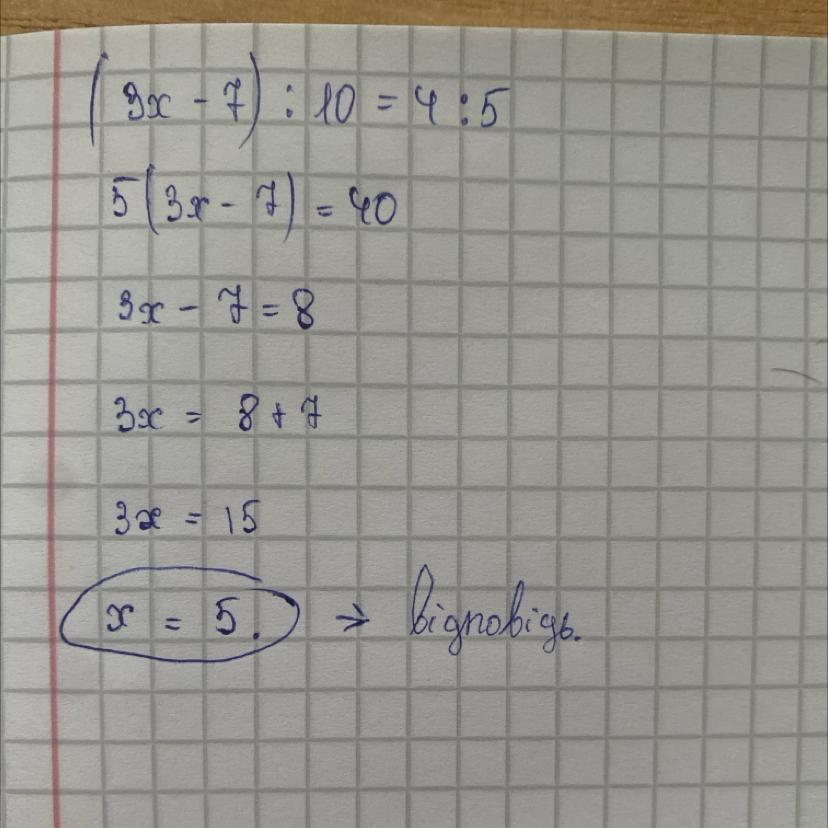 (3x - 7) : 10 = 4 : 5
5(3x - 7) = 40
3x - 7 = 8
3x = 8 + 7
3x = 15
x = 5. → відповідь.